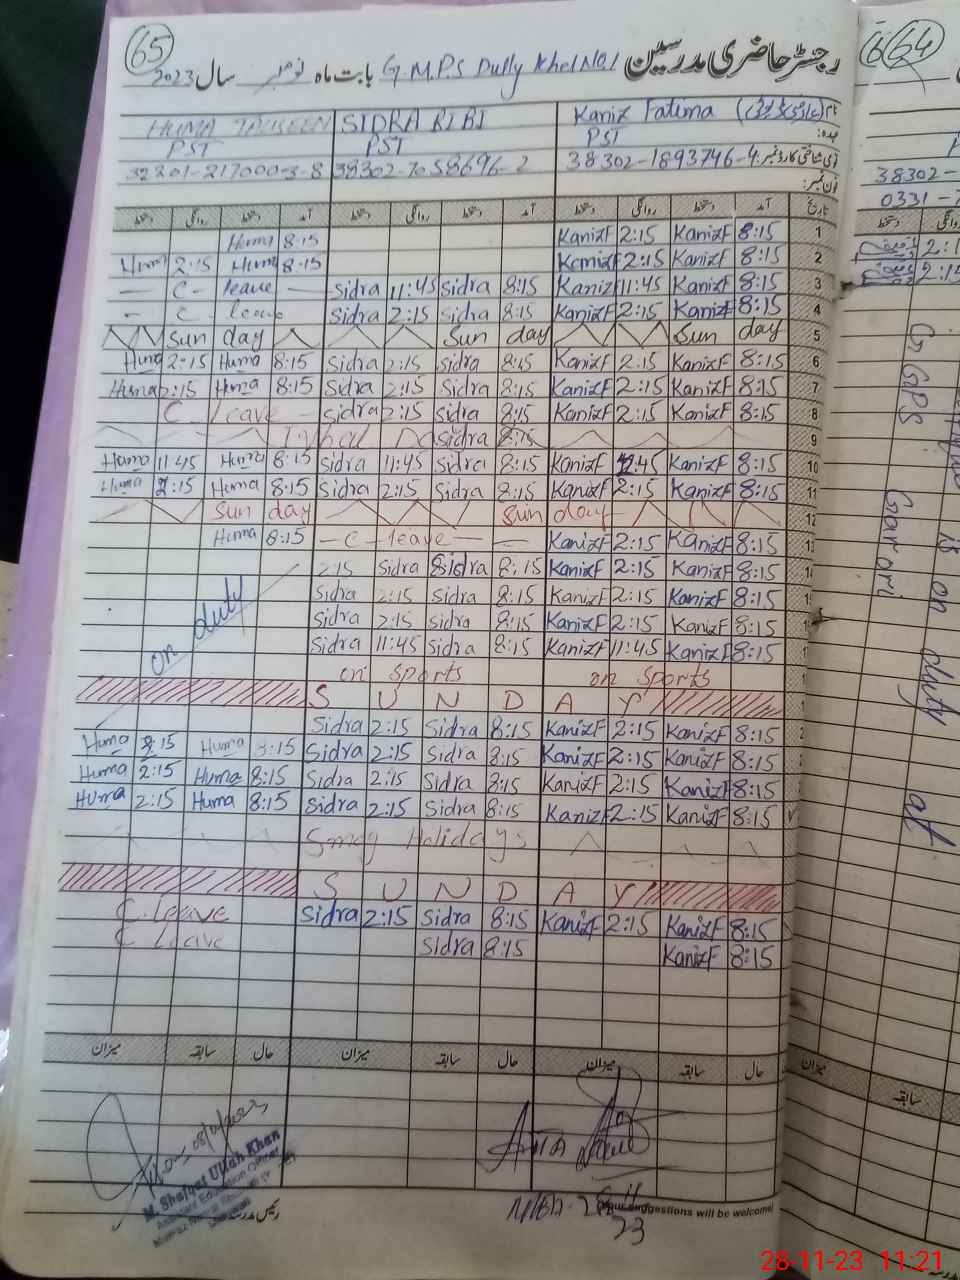 65
رجسٹر حاضری مدرسین G.M.P.S Dully Khel No1 بابت ماہ نومبر سال 2023
HUMA TAHSEEN SIDRA BIBI Kaniz Fatima
PST PST PST
32301-217000-3-8 38302-7058696-2 38302-1893746-4
دستخط روانگی دستخط آمد دستخط روانگی دستخط آمد دستخط روانگی دستخط آمد تاریخ
Huma 8:15 KanizF 2:15 KanizF 8:15 1
Huma 2:15 Huma 8:15 KanizF 2:15 KanizF 8:15 2
— C - leave — Sidra 11:45 Sidra 8:15 KanizF 11:45 KanizF 8:15 3
- C - leave Sidra 2:15 Sidra 8:15 KanizF 2:15 KanizF 8:15 4
Sun day Sun day Sun day 5
Huma 2:15 Huma 8:15 Sidra 2:15 Sidra 8:15 KanizF 2:15 KanizF 8:15 6
Huma 2:15 Huma 8:15 Sidra 2:15 Sidra 8:15 KanizF 2:15 KanizF 8:15 7
C Leave - Sidra 2:15 Sidra 8:15 KanizF 2:15 KanizF 8:15 8
Iqbal Da Sidra 8:15 9
Huma 11:45 Huma 8:15 Sidra 11:45 Sidra 8:15 KanizF 12:45 KanizF 8:15 10
Huma 2:15 Huma 8:15 Sidra 2:15 Sidra 8:15 KanizF 2:15 KanizF 8:15 11
Sun day Sun day 12
Huma 8:15 — C - leave — KanizF 2:15 KanizF 8:15 13
2:15 Sidra 8:15 Sidra 8:15 KanizF 2:15 KanizF 8:15
Sidra 2:15 Sidra 8:15 KanizF 2:15 KanizF 8:15
on duty Sidra 2:15 Sidra 8:15 KanizF 2:15 KanizF 8:15
Sidra 11:45 Sidra 8:15 KanizF 11:45 KanizF 8:15
on sports on sports
S U N D A Y
Sidra 2:15 Sidra 8:15 KanizF 2:15 KanizF 8:15
Huma 2:15 Huma 8:15 Sidra 2:15 Sidra 8:15 KanizF 2:15 KanizF 8:15
Huma 2:15 Huma 8:15 Sidra 2:15 Sidra 8:15 KanizF 2:15 KanizF 8:15
Huma 2:15 Huma 8:15 Sidra 2:15 Sidra 8:15 KanizF 2:15 KanizF 8:15
Smog Holidays
S U N D A Y
C. leave Sidra 2:15 Sidra 8:15 KanizF 2:15 KanizF 8:15
C Leave Sidra 8:15 KanizF 8:15
میزان سابقہ حال میزان سابقہ حال میزان سابقہ حال
M. Shafqat Ullah Khan
Assistant Education Officer
رئیس مدرسہ
suggestions will be welcome
23
64
38302-
0331-
G GPS Garari
is on duty at
میزان
سابقہ
28-11-23 11:21